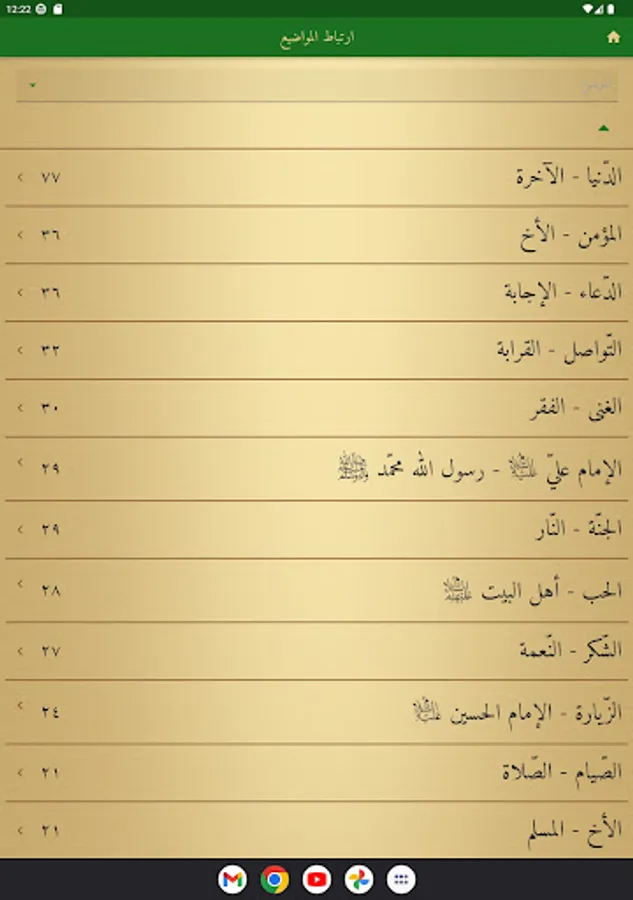 12:22
ارتباط المواضيع
الدّنيا - الآخرة ٧٧
المؤمن - الأخ ٣٦
الدّعاء - الإجابة ٣٦
التّواصل - القرابة ٣٢
الغنى - الفقر ٣٠
الإمام عليّ - رسول الله محمّد ﷺ ٢٩
الجنّة - النّار ٢٩
الحب - أهل البيت ٢٨
الشّكر - النّعمة ٢٧
الزّيارة - الإمام الحسين ٢٤
الصّيام - الصّلاة ٢١
الأخ - المسلم ٢١